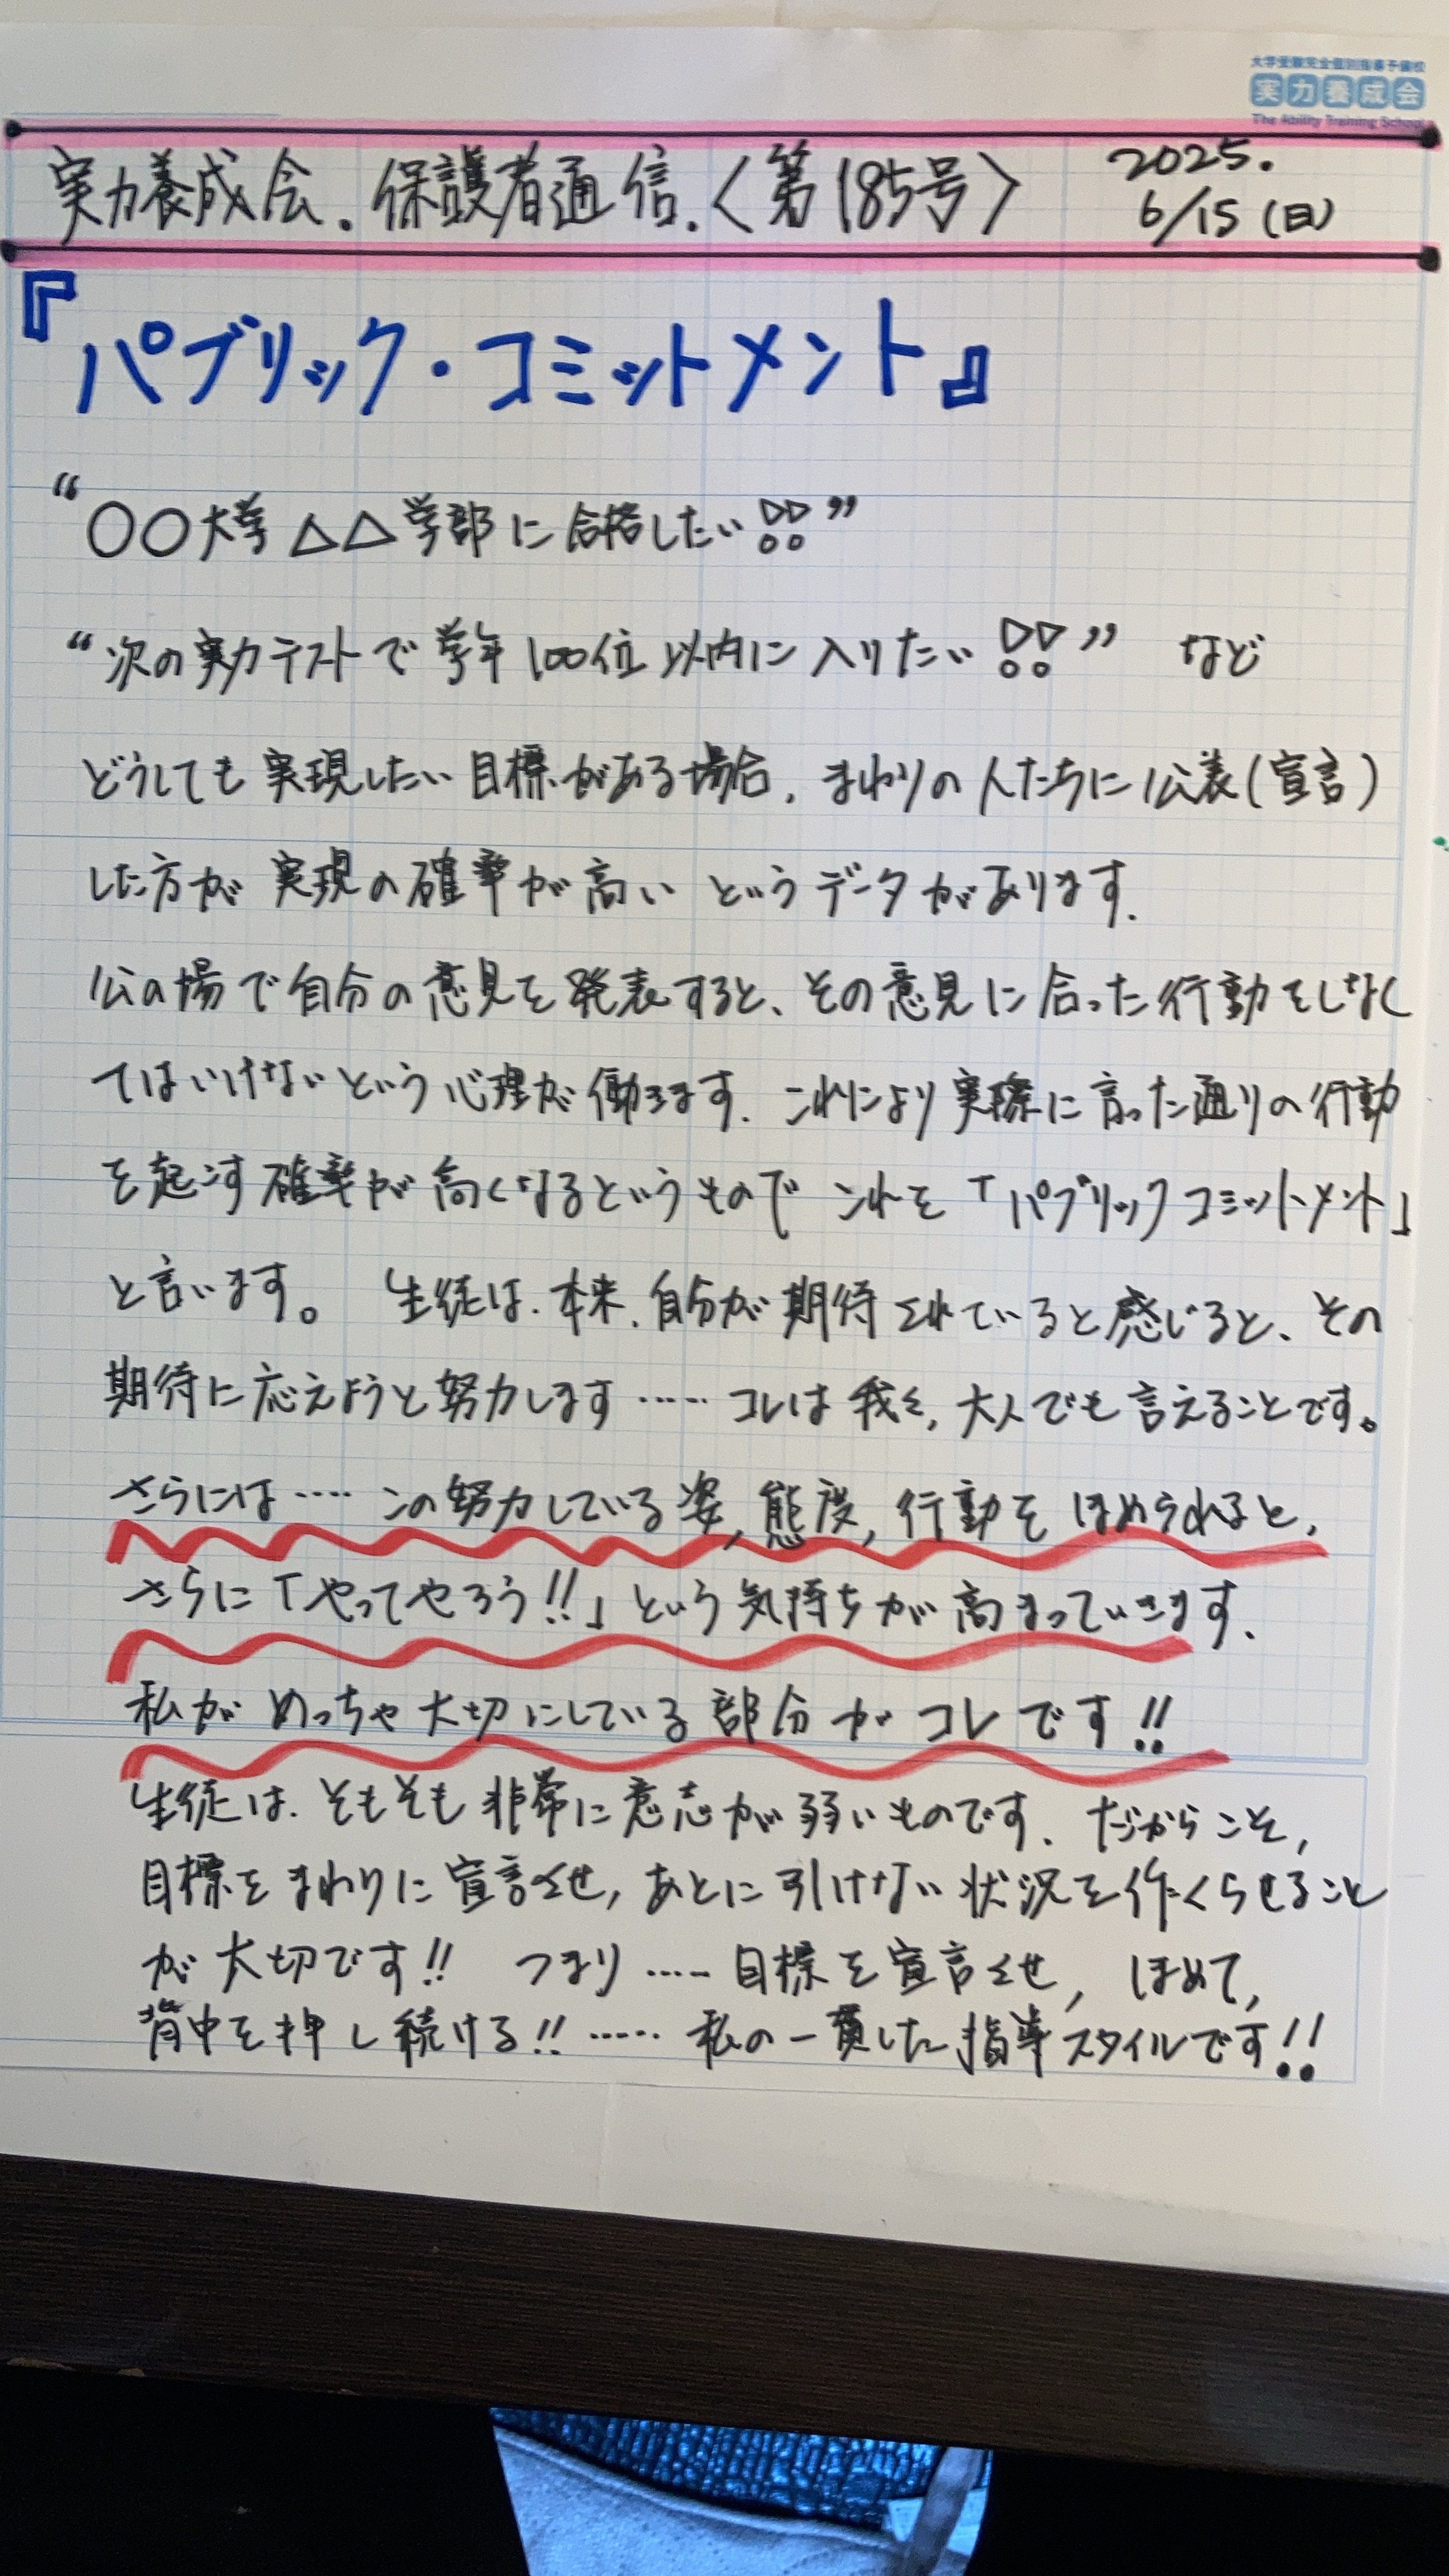 大学受験完全個別指導予備校
実力養成会
The Ability Training School
実力養成会.保護者通信.〈第185号〉
2025.
6/15(日)
『パブリック・コミットメント』
“○○大学△△学部に合格したい!!”
“次の実力テストで学年100位以内に入りたい!!” など
どうしても実現したい目標がある場合、まわりの人たちに公表(宣言)
した方が実現の確率が高いというデータがあります.
公の場で自分の意見を発表すると、その意見に合った行動をしなく
てはいけないという心理が働きます. これにより実際に言った通りの行動
を起こす確率が高くなるというもので これを「パブリックコミットメント」
と言います。 生徒は.本来.自分が期待されていると感じると、その
期待に応えようと努力します…… コレは我々,大人でも言えることです。
さらには…. この努力している姿,態度,行動を ほめられると,
さらに「やってやろう!!」という気持ちが高まっていきます.
私がめっちゃ大切にしている部分がコレです!!
生徒は.そもそも非常に意志が弱いものです. だからこそ,
目標をまわりに宣言させ,あとに引けない状況を作くらせること
が大切です!! つまり….. 目標を宣言させ, ほめて,
背中を押し続ける!!….. 私の一貫した指導スタイルです!!